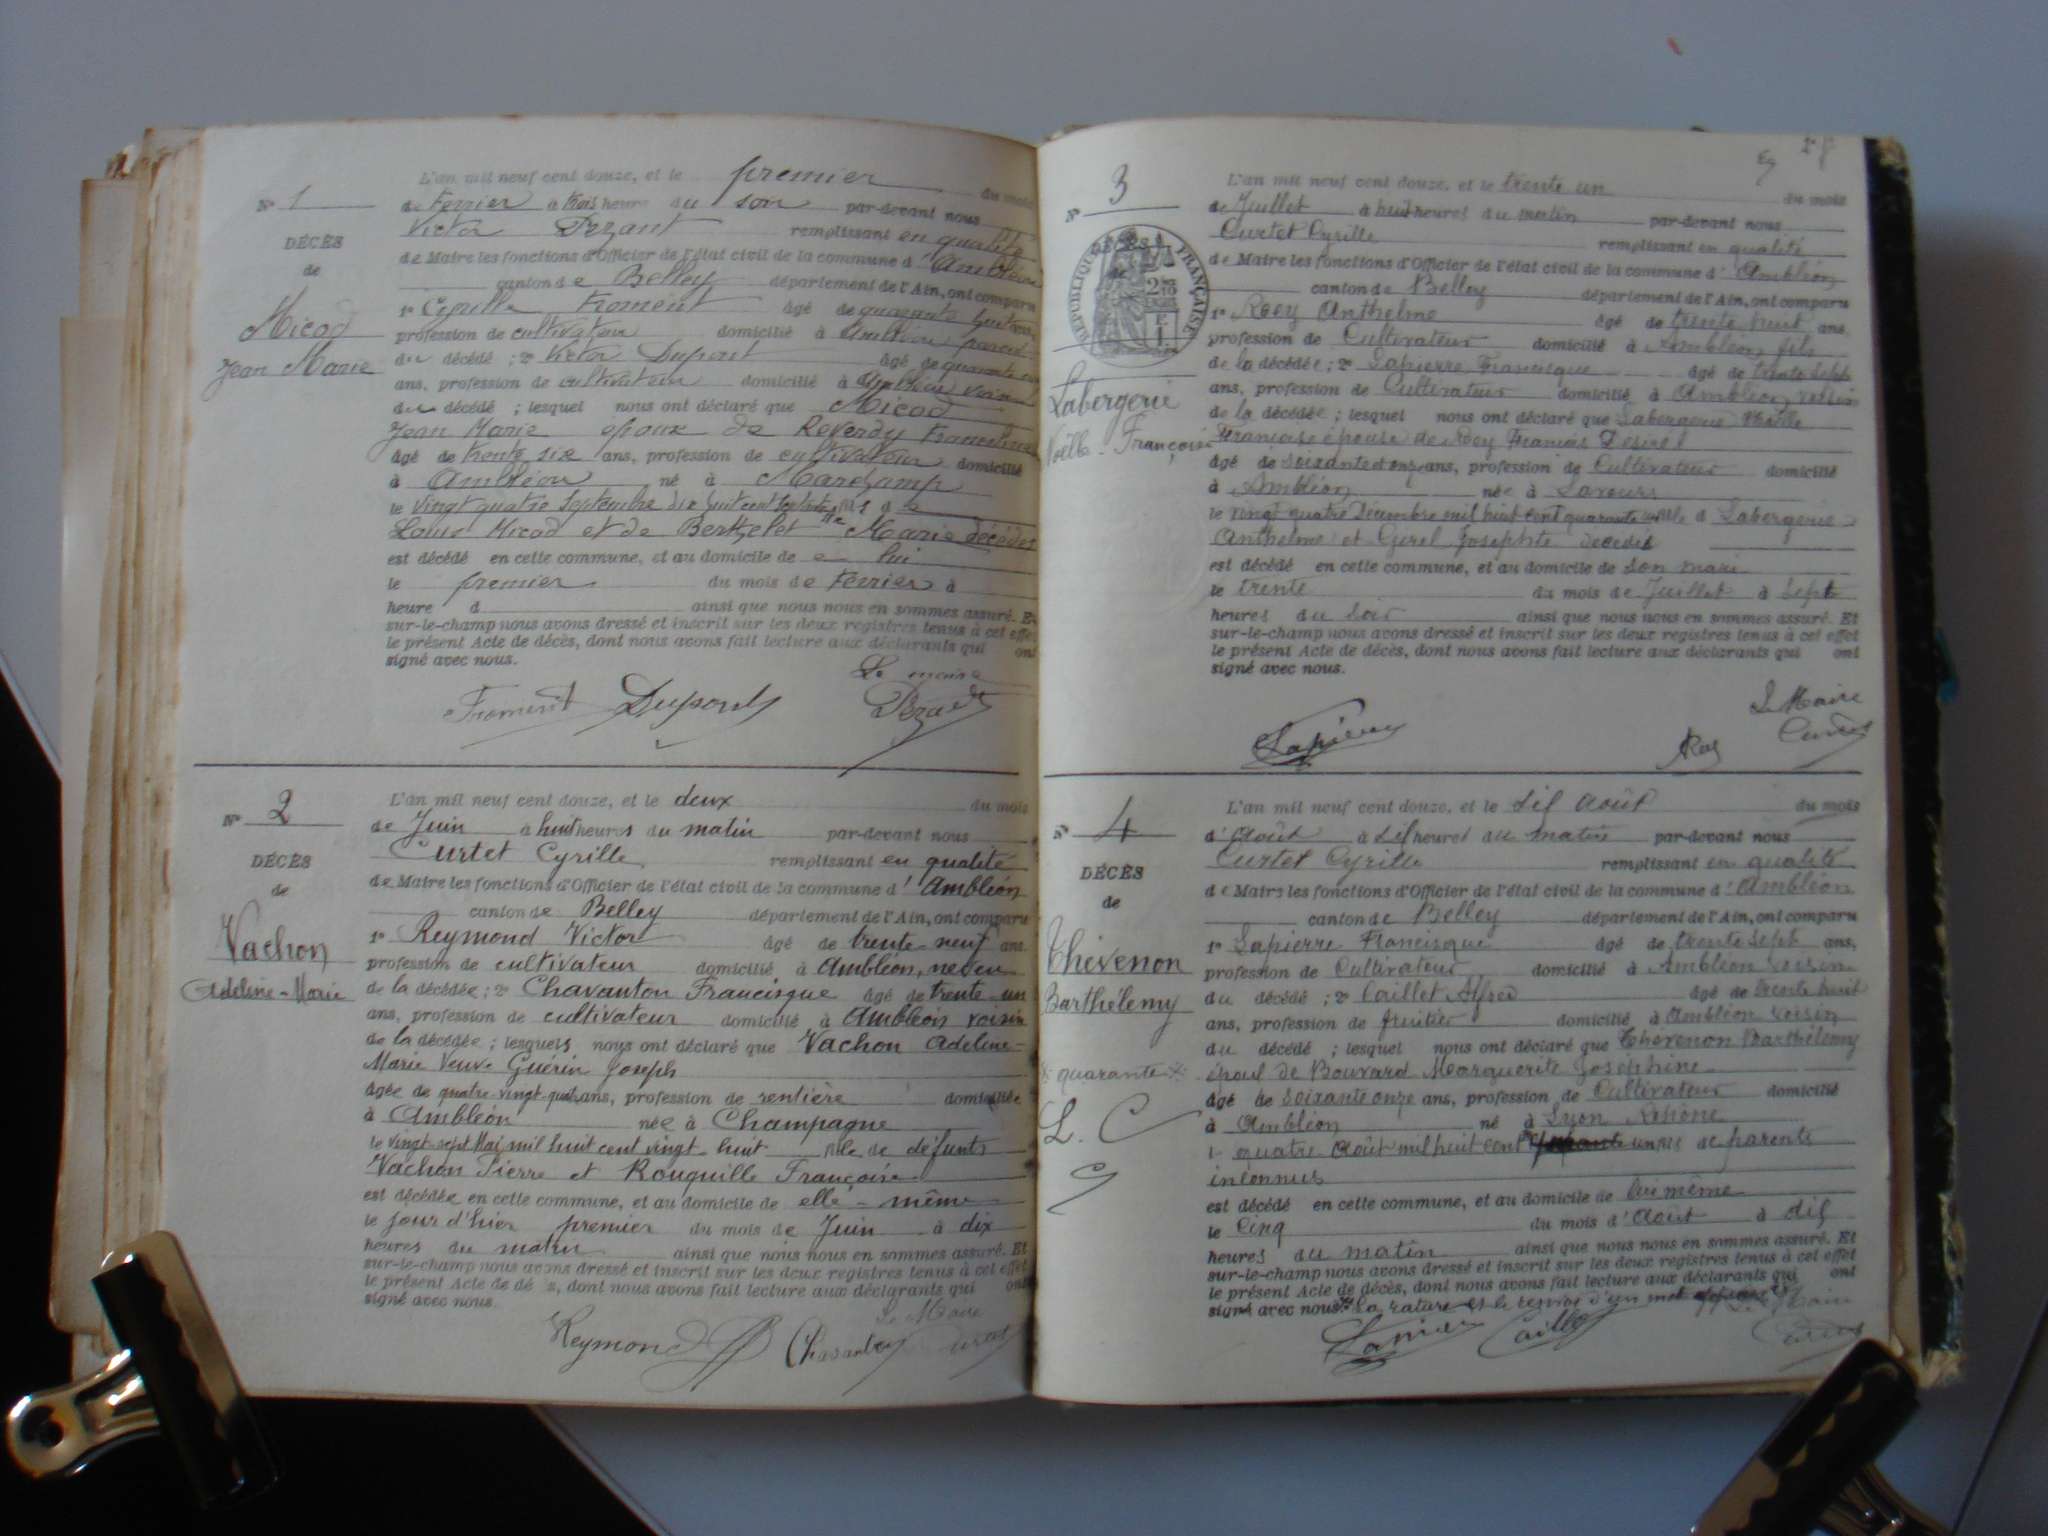 N° 1
DÉCÈS
de
Micod
Jean Marie
L'an mil neuf cent douze, et le premier du mois
de Février à trois heure du soir par-devant nous
Victor Dezant remplissant en qualité
de Maire les fonctions d'Officier de l'état civil de la commune d' Ambléon
canton de Belley département de l'Ain, ont comparu
1° Cyrille Froment âgé de quarante huit ans,
profession de cultivateur domicilié à Ambléon parent
du décédé ; 2° Victor Dupont âgé de quarante
ans, profession de cultivateur domicilié à Ambléon voisin
du décédé ; lesquel nous ont déclaré que Micod
Jean Marie époux de Reverdy Franceline
âgé de trente six ans, profession de cultivateur domicilié
à Ambléon né à Marchamp
le vingt quatre Septembre dix huit cent fils d e
Louis Micod et de Berthelet Marie décédés
est décédé en cette commune, et au domicile de lui
le premier du mois de Février à
heure d ainsi que nous nous en sommes assuré. Et
sur-le-champ nous avons dressé et inscrit sur les deux registres tenus à cet effet
le présent Acte de décès, dont nous avons fait lecture aux déclarants qui ont
signé avec nous.
Le maire
Froment Dupont Dezant
N° 2
DÉCÈS
de
Vachon
Adeline-Marie
L'an mil neuf cent douze, et le deux du mois
de Juin à huit heures du matin par-devant nous
Curtet Cyrille remplissant en qualité
de Maire les fonctions d'Officier de l'état civil de la commune d' Ambléon
canton de Belley département de l'Ain, ont comparu
1° Reymond Victor âgé de trente-neuf ans
profession de cultivateur domicilié à Ambléon, neveu
de la décédée ; 2° Chavanton Francisque âgé de trente-un
ans, profession de cultivateur domicilié à Ambléon voisin
de la décédée ; lesquels nous ont déclaré que Vachon Adeline-
Marie Veuve Guérin Joseph
âgée de quatre-vingt-quatre ans, profession de rentière domiciliée
à Ambléon née à Champagne
le vingt-sept Mai mil huit cent vingt-huit fille de défunts
Vachon Pierre et Rouquille Françoise
est décédée en cette commune, et au domicile de elle-même
le jour d'hier premier du mois de Juin à dix
heures du matin ainsi que nous nous en sommes assuré. Et
sur-le-champ nous avons dressé et inscrit sur les deux registres tenus à cet effet
le présent Acte de dé s, dont nous avons fait lecture aux déclarants qui ont
signé avec nous.
Le Maire
Reymond Chavanton Curtet
N° 3
RÉPUBLIQUE FRANÇAISE
de
Labergerie
Noëlle-Françoise
L'an mil neuf cent douze, et le trente un du mois
de Juillet à huit heures du matin par-devant nous
Curtet Cyrille remplissant en qualité
de Maire les fonctions d'Officier de l'état civil de la commune d' Ambléon
canton de Belley département de l'Ain, ont comparu
1° Roey Anthelme âgé de trente huit ans
profession de Cultivateur domicilié à Ambléon fils
de la décédée ; 2° Lapierre Francisque âgé de trente sept
ans, profession de Cultivateur domicilié à Ambléon voisin
de la décédée ; lesquel nous ont déclaré que Labergerie Noëlle
Françoise épouse de Roey Francois Desiré
âgé de soixante et onze ans, profession de Cultivateur domicilié
à Ambléon née à Lavours
le vingt quatre Décembre mil huit cent quarante un fille d Labergerie
Anthelme et Gurel Josephte décédés
est décédé en cette commune, et au domicile de son mari
le trente du mois de Juillet à sept
heures du soir ainsi que nous nous en sommes assuré. Et
sur-le-champ nous avons dressé et inscrit sur les deux registres tenus à cet effet
le présent Acte de décès, dont nous avons fait lecture aux déclarants qui ont
signé avec nous.
Le Maire
Lapierre Roey Curtet
N° 4
DÉCÈS
de
Thévenon
Barthélemy
quarante
L. C
L'an mil neuf cent douze, et le six Août du mois
d' Août à six heures du matin par-devant nous
Curtet Cyrille remplissant en qualité
de Maire les fonctions d'Officier de l'état civil de la commune d' Ambléon
canton de Belley département de l'Ain, ont comparu
1° Lapierre Francisque âgé de trente sept ans,
profession de Cultivateur domicilié à Ambléon voisin
du décédé ; 2° Caillet Alfred âgé de trente huit
ans, profession de fruitier domicilié à Ambléon voisin
du décédé ; lesquel nous ont déclaré que Thévenon Barthélemy
époux de Bouvard Marguerite Joséphine
âgé de soixante onze ans, profession de Cultivateur domicilié
à Ambléon né à Lyon Rhône
le quatre Août mil huit cent un fils de parents
inconnus
est décédé en cette commune, et au domicile de lui même
le Cinq du mois d' Août à dix
heures du matin ainsi que nous nous en sommes assuré. Et
sur-le-champ nous avons dressé et inscrit sur les deux registres tenus à cet effet
le présent Acte de décès, dont nous avons fait lecture aux déclarants qui ont
signé avec nous. la rature et le renvoi d'un mot Le Maire
Lapierre Caillet Curtet